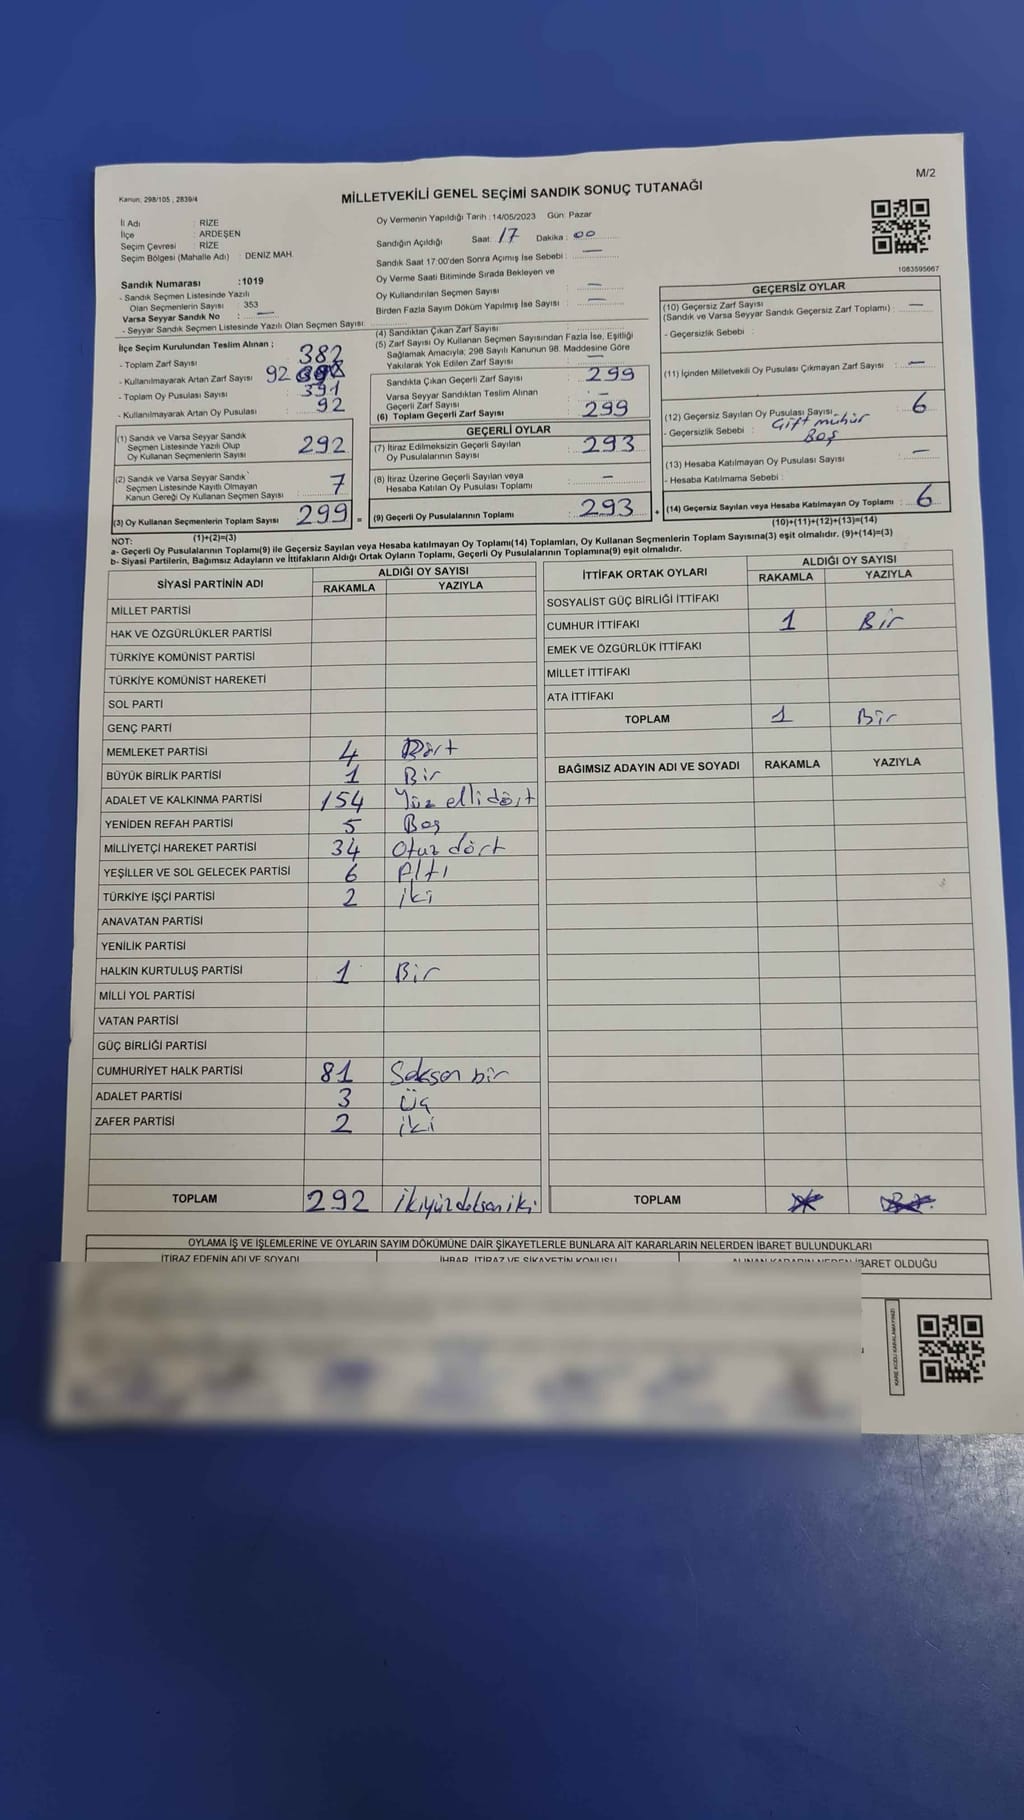 M/2
Kanun; 298/105 , 2839/4
MİLLETVEKİLİ GENEL SEÇİMİ SANDIK SONUÇ TUTANAĞI
İl Adı : RİZE
İlçe : ARDEŞEN
Seçim Çevresi : RİZE
Seçim Bölgesi (Mahalle Adı) : DENİZ MAH.
Sandık Numarası :1019
- Sandık Seçmen Listesinde Yazılı
Olan Seçmenlerin Sayısı : 353
Varsa Seyyar Sandık No : —
- Seyyar Sandık Seçmen Listesinde Yazılı Olan Seçmen Sayısı:
Oy Vermenin Yapıldığı Tarih : 14/05/2023 Gün: Pazar
Sandığın Açıldığı Saat: 17 Dakika : 00
Sandık Saat 17:00'den Sonra Açımış İse Sebebi : —
Oy Verme Saati Bitiminde Sırada Bekleyen ve
Oy Kullandırılan Seçmen Sayısı : —
Birden Fazla Sayım Döküm Yapılmış İse Sayısı : —
1083595667
İlçe Seçim Kurulundan Teslim Alınan ;
- Toplam Zarf Sayısı : 382
- Kullanılmayarak Artan Zarf Sayısı : 92
- Toplam Oy Pusulası Sayısı : 391
- Kullanılmayarak Artan Oy Pusulası : 92
(1) Sandık ve Varsa Seyyar Sandık
Seçmen Listesinde Yazılı Olup
Oy Kullanan Seçmenlerin Sayısı : 292
(2) Sandık ve Varsa Seyyar Sandık
Seçmen Listesinde Kayıtlı Olmayan
Kanun Gereği Oy Kullanan Seçmen Sayısı : 7
(3) Oy Kullanan Seçmenlerin Toplam Sayısı : 299 =
(1)+(2)=(3)
(4) Sandıktan Çıkan Zarf Sayısı :
(5) Zarf Sayısı Oy Kullanan Seçmen Sayısından Fazla İse, Eşitliği
Sağlamak Amacıyla; 298 Sayılı Kanunun 98. Maddesine Göre
Yakılarak Yok Edilen Zarf Sayısı : —
Sandıkta Çıkan Geçerli Zarf Sayısı : 299
Varsa Seyyar Sandıktan Teslim Alınan
Geçerli Zarf Sayısı : -
(6) Toplam Geçerli Zarf Sayısı : 299
GEÇERLİ OYLAR
(7) İtiraz Edilmeksizin Geçerli Sayılan
Oy Pusulalarının Sayısı : 293
(8) İtiraz Üzerine Geçerli Sayılan veya
Hesaba Katılan Oy Pusulası Toplamı : —
(9) Geçerli Oy Pusulalarının Toplamı : 293 +
GEÇERSİZ OYLAR
(10) Geçersiz Zarf Sayısı
(Sandık ve Varsa Seyyar Sandık Geçersiz Zarf Toplamı) : —
- Geçersizlik Sebebi :
(11) İçinden Milletvekili Oy Pusulası Çıkmayan Zarf Sayısı : —
(12) Geçersiz Sayılan Oy Pusulası Sayısı : 6
- Geçersizlik Sebebi : Çift mühür
Boş
(13) Hesaba Katılmayan Oy Pusulası Sayısı : —
- Hesaba Katılmama Sebebi :
(14) Geçersiz Sayılan veya Hesaba Katılmayan Oy Toplamı : 6
(10)+(11)+(12)+(13)=(14)
NOT:
a- Geçerli Oy Pusulalarının Toplamı(9) ile Geçersiz Sayılan veya Hesaba katılmayan Oy Toplamı(14) Toplamları, Oy Kullanan Seçmenlerin Toplam Sayısına(3) eşit olmalıdır. (9)+(14)=(3)
b- Siyasi Partilerin, Bağımsız Adayların ve İttifakların Aldığı Ortak Oyların Toplamı, Geçerli Oy Pusulalarının Toplamına(9) eşit olmalıdır.
SİYASİ PARTİNİN ADI ALDIĞI OY SAYISI
RAKAMLA YAZIYLA
MİLLET PARTİSİ
HAK VE ÖZGÜRLÜKLER PARTİSİ
TÜRKİYE KOMÜNİST PARTİSİ
TÜRKİYE KOMÜNİST HAREKETİ
SOL PARTİ
GENÇ PARTİ
MEMLEKET PARTİSİ 4 Dört
BÜYÜK BİRLİK PARTİSİ 1 Bir
ADALET VE KALKINMA PARTİSİ 154 Yüz elli dört
YENİDEN REFAH PARTİSİ 5 Beş
MİLLİYETÇİ HAREKET PARTİSİ 34 Otuz dört
YEŞİLLER VE SOL GELECEK PARTİSİ 6 Altı
TÜRKİYE İŞÇİ PARTİSİ 2 iki
ANAVATAN PARTİSİ
YENİLİK PARTİSİ
HALKIN KURTULUŞ PARTİSİ 1 Bir
MİLLİ YOL PARTİSİ
VATAN PARTİSİ
GÜÇ BİRLİĞİ PARTİSİ
CUMHURİYET HALK PARTİSİ 81 Seksen bir
ADALET PARTİSİ 3 üç
ZAFER PARTİSİ 2 iki
TOPLAM 292 ikiyüzdoksaniki
İTTİFAK ORTAK OYLARI ALDIĞI OY SAYISI
RAKAMLA YAZIYLA
SOSYALİST GÜÇ BİRLİĞİ İTTİFAKI
CUMHUR İTTİFAKI 1 Bir
EMEK VE ÖZGÜRLÜK İTTİFAKI
MİLLET İTTİFAKI
ATA İTTİFAKI
TOPLAM 1 Bir
BAĞIMSIZ ADAYIN ADI VE SOYADI RAKAMLA YAZIYLA
TOPLAM
OYLAMA İŞ VE İŞLEMLERİNE VE OYLARIN SAYIM DÖKÜMÜNE DAİR ŞİKAYETLERLE BUNLARA AİT KARARLARIN NELERDEN İBARET BULUNDUKLARI
İTİRAZ EDENİN ADI VE SOYADI İHBAR, İTİRAZ VE ŞİKAYETİN KONUSU ALINAN KARARIN NEDEN İBARET OLDUĞU
KARE KODU KARALAMAYINIZ!